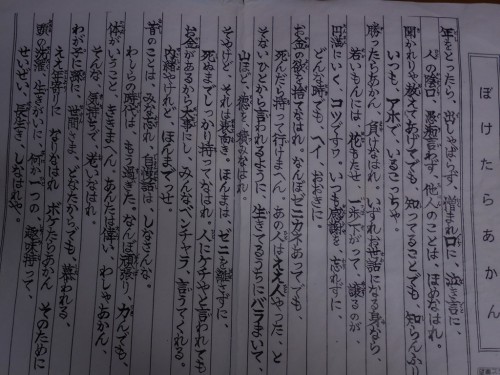 ぼけたらあかん
年をとったら、出しゃばらず、憎まれ口に、泣き言に、
人の陰口、愚痴言わず、他人のことは、ほめなはれ。
聞かれりゃ教えてあげてでも、知ってることでも、知らんふり
いつも、アホで、いるこっちゃ。
勝ったらあかん 負けなはれ いずれお世話になる身なら、
若いもんには 花もたせ、一歩下がって 譲るのが、
円満にいく、コツですワ。いつも感謝を 忘れずに、
どんな時でも へイ、おおきに。
お金の欲を 捨てなはれ、なんぼゼニカネあっても、
死んだら持って行けまへん。あの人はええ人やった、と
そない、ひとから言われるように 生きてるうちにバラまいて、
山ほど徳を 積みなはれ。
そやけど、それは表向き。ほんまは、ゼニを離さずに、
死ぬまでしっかり 持ってなはれ 人にケチやと言われても
お金があるから 大事にし、みんなベンチャラ、言うてくれる。
内緒やけれど、ほんまでっせ。
昔のことは みな忘れ 自慢話は しなさんな、
わしらの時代は もう過ぎた、なんぼ頑張り 力んでも、
体がいうこと、ききまへん、あんたは偉い、わしゃあかん、
そんな、気持ちで 老いなはれ、
わが子に孫に、世間さま、どなたからでも、慕われる、
ええ年寄りに なりなはれ ボケたらあかん そのために
頭の洗濯、生きがいに 何か一つの 趣味持って、
せいぜい、長生き、しなはれや。